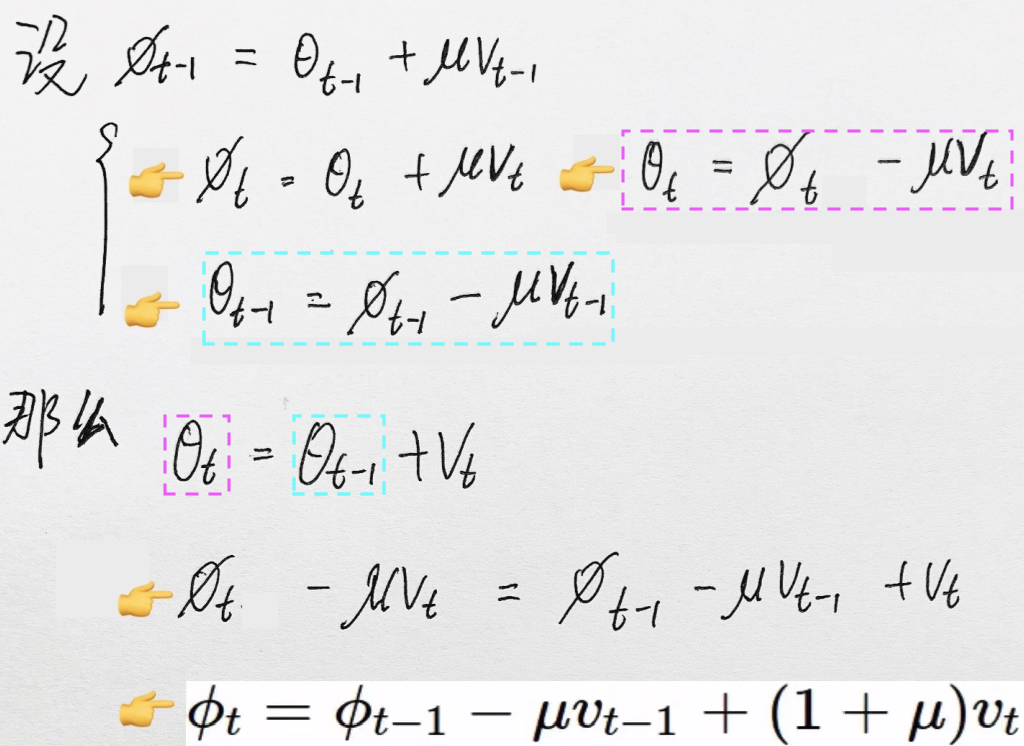 设 ϕₜ₋₁ = θₜ₋₁ + μvₜ₋₁
👉 ϕₜ = θₜ + μvₜ 👉 θₜ = ϕₜ - μvₜ
👉 θₜ₋₁ = ϕₜ₋₁ - μvₜ₋₁
那么 θₜ = θₜ₋₁ + vₜ
👉 ϕₜ - μvₜ = ϕₜ₋₁ - μvₜ₋₁ + vₜ
👉 ϕₜ = ϕₜ₋₁ - μvₜ₋₁ + (1 + μ)vₜ